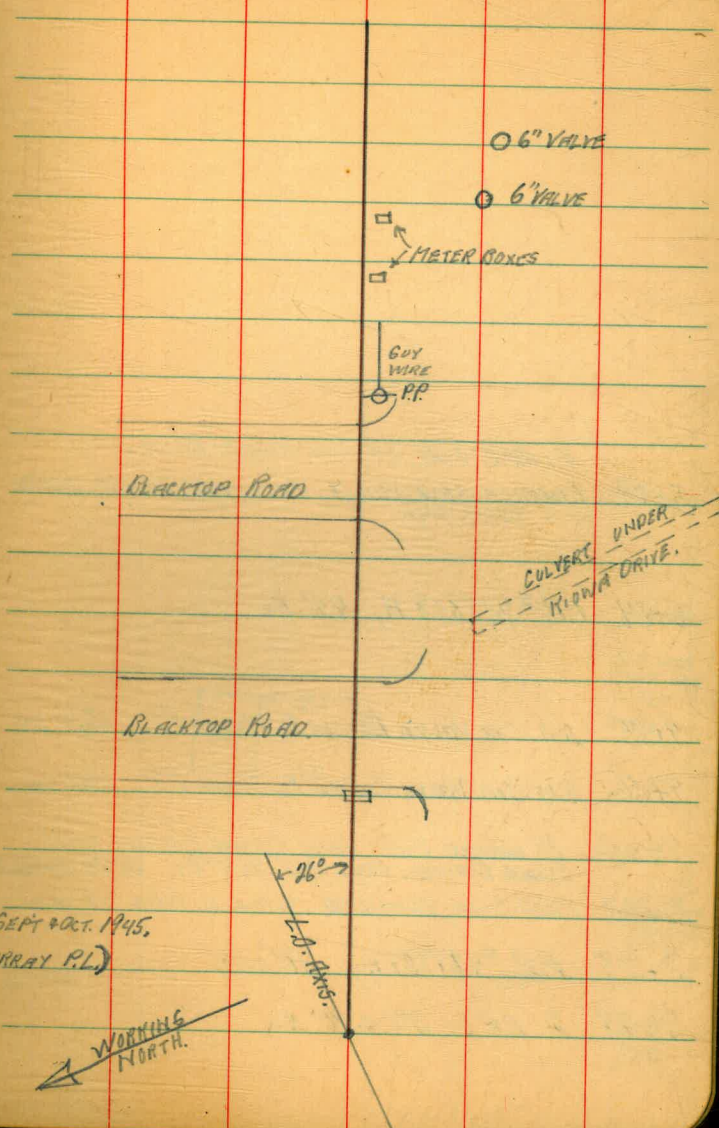 6" VALVE
6" VALVE
METER BOXES
GUY
WIRE
P.P.
BLACKTOP ROAD
CULVERT UNDER
KIOWA DRIVE.
BLACKTOP ROAD.
26°
L.D. AXIS.
SEPT & OCT. 1945.
RRAY P.L.)
WORKING
NORTH.